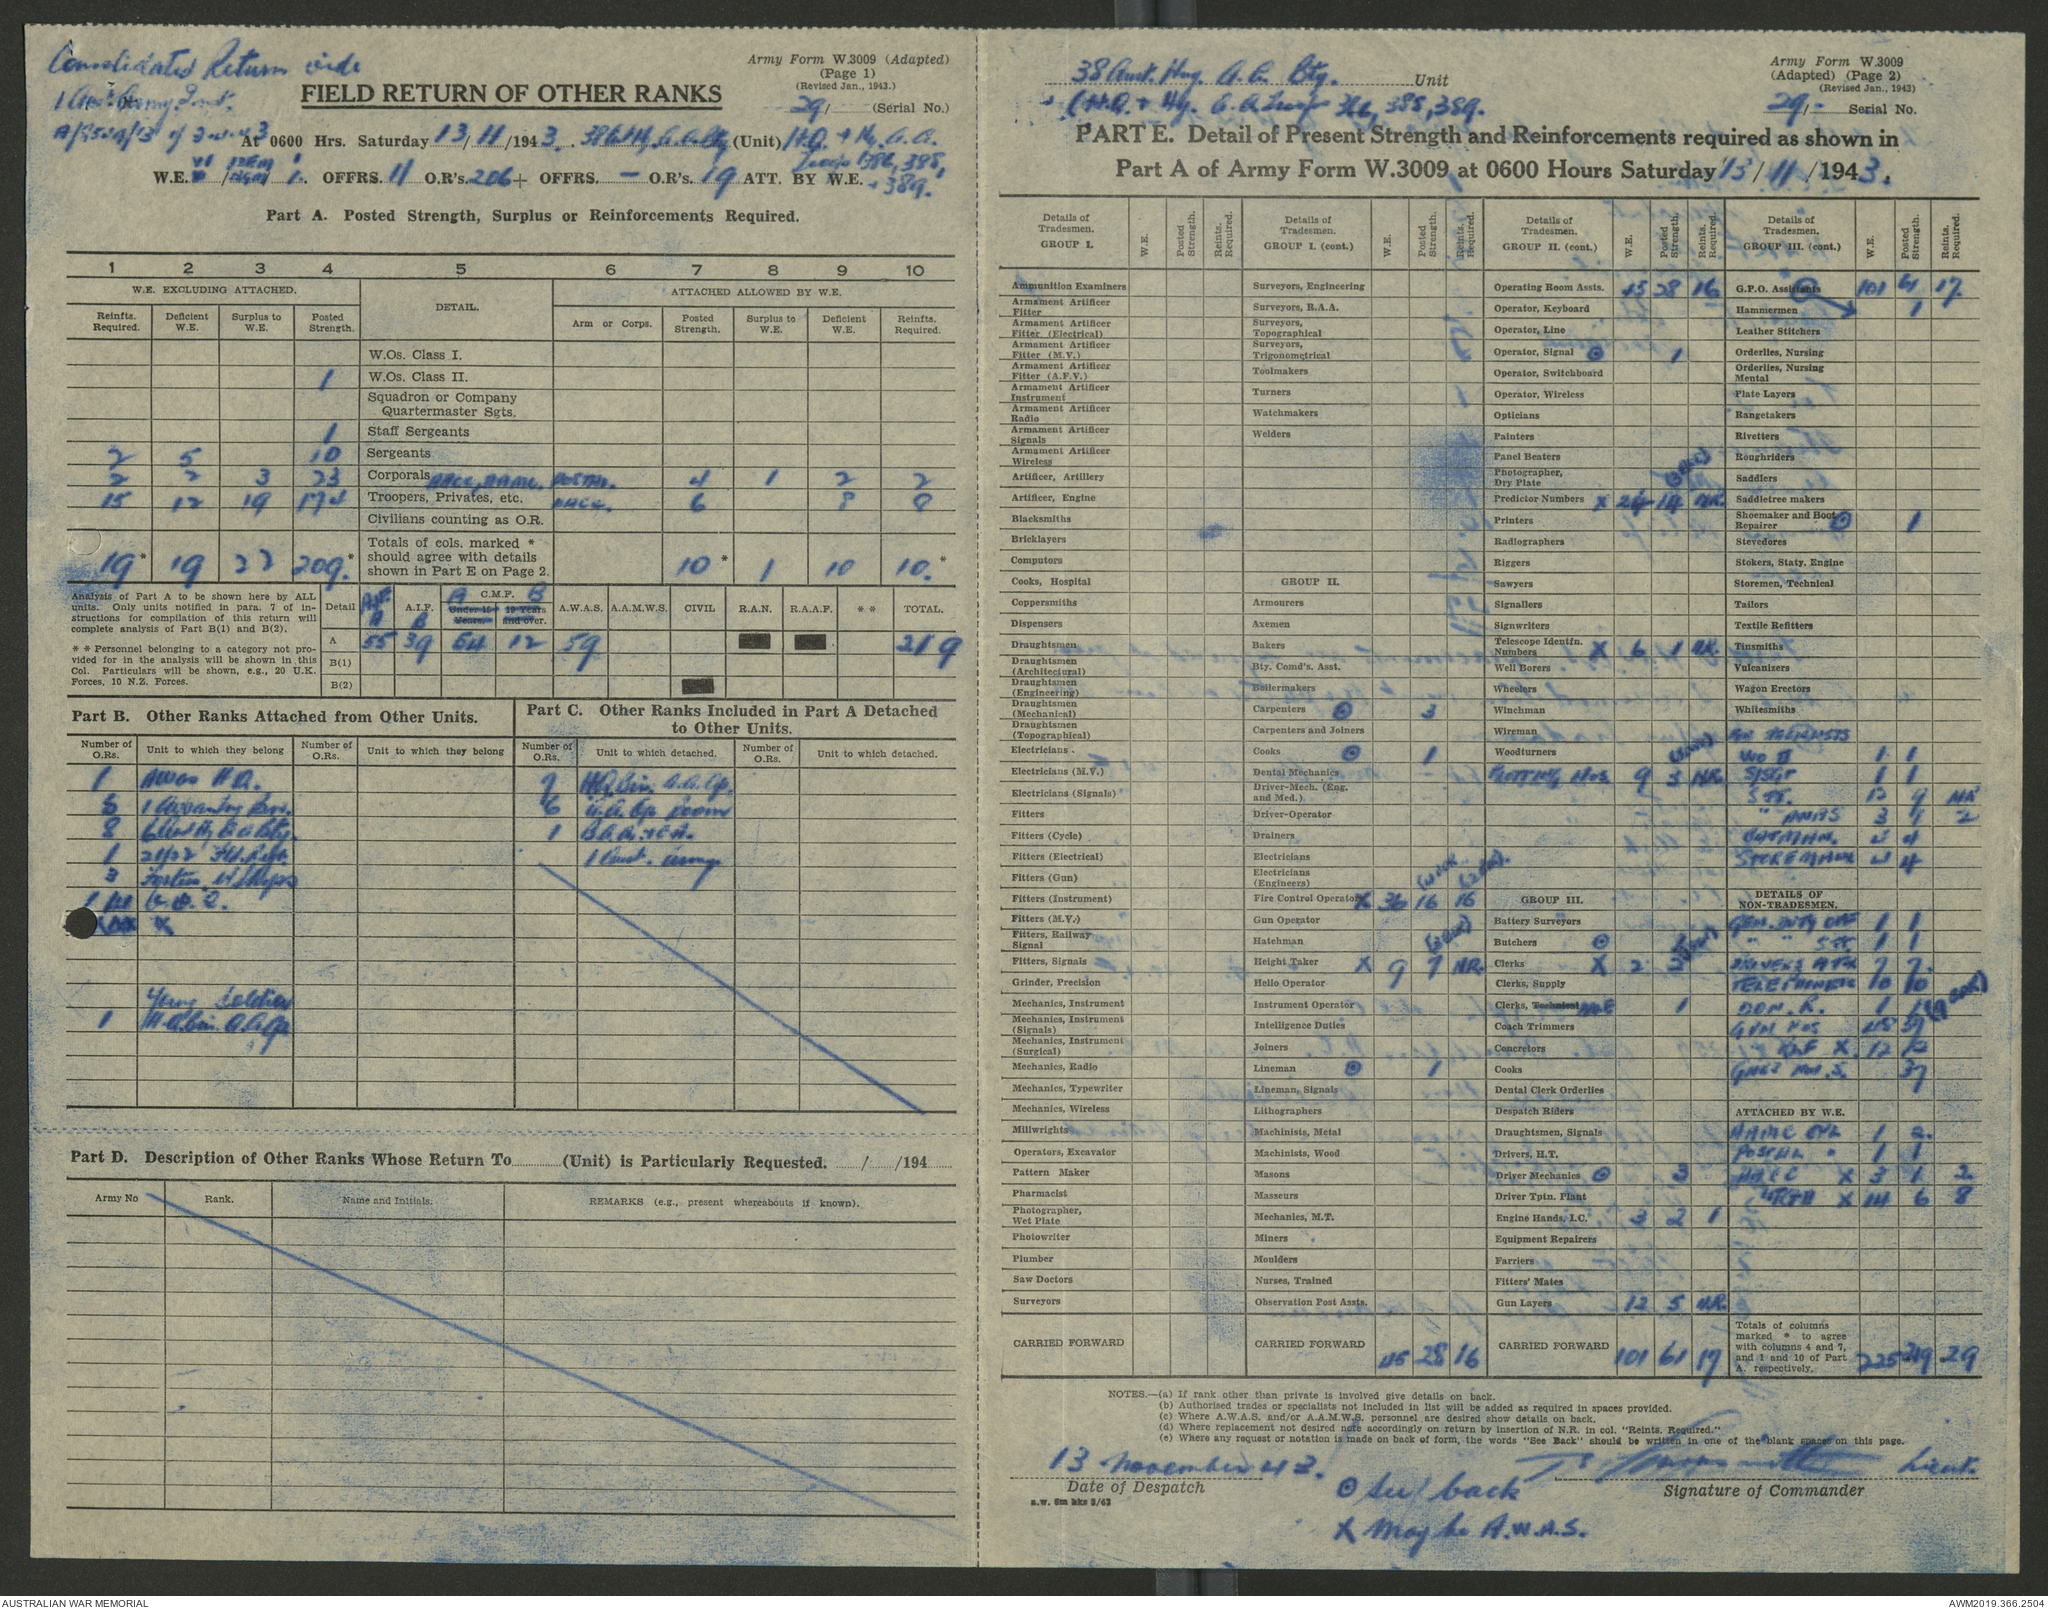 Consolidated Return vide
Army Form W.3009 (Adapted)
(Page 1)
(Revised Jan., 1943.)
29/ (Serial No.)
FIELD RETURN OF OTHER RANKS
At 0600 Hrs. Saturday 13/11/1943. (Unit) H.Q. + Hy. A.A.
Troops 386, 388, + 389.
W.E. OFFRS. 11 O.R's. 206 + OFFRS. - O.R's. 19 ATT. BY W.E.
Part A. Posted Strength, Surplus or Reinforcements Required.
1 2 3 4 5 6 7 8 9 10
W.E. EXCLUDING ATTACHED. DETAIL. ATTACHED ALLOWED BY W.E.
Reinfts. Required. Deficient W.E. Surplus to W.E. Posted Strength. Arm or Corps. Posted Strength. Surplus to W.E. Deficient W.E. Reinfts. Required.
W.Os. Class I.
1 W.Os. Class II.
Squadron or Company Quartermaster Sgts.
1 Staff Sergeants
2 5 10 Sergeants
2 2 3 23 Corporals AACC, AAMC. POSTAL. 4 1 2 2
15 12 19 174 Troopers, Privates, etc. AACC. 6 8 8
Civilians counting as O.R.
19* 19 22 209.* Totals of cols. marked * should agree with details shown in Part E on Page 2. 10* 1 10 10.*
Analysis of Part A to be shown here by ALL units. Only units notified in para. 7 of instructions for compilation of this return will complete analysis of Part B(1) and B(2).
** Personnel belonging to a category not provided for in the analysis will be shown in this Col. Particulars will be shown, e.g., 20 U.K. Forces, 10 N.Z. Forces.
Detail A.I.F. A A.I.F. B C.M.F. A Under 19 Years. B 19 Years and over. A.W.A.S. A.A.M.W.S. CIVIL R.A.N. R.A.A.F. ** TOTAL.
A 55 39 54 12 59 219
B(1)
B(2)
Part B. Other Ranks Attached from Other Units.
Number of O.Rs. Unit to which they belong Number of O.Rs. Unit to which they belong
1 AWAS H.Q.
5
8
1 21/22 Fd. Regt.
3
1
Young Soldier
1
Part C. Other Ranks Included in Part A Detached to Other Units.
Number of O.Rs. Unit to which detached. Number of O.Rs. Unit to which detached.
7
6 A.A. Op. Room
1
1 Aust. Army
Part D. Description of Other Ranks Whose Return To (Unit) is Particularly Requested. / /194
Army No Rank. Name and Initials. REMARKS (e.g., present whereabouts if known).
38 Aust. Hvy. A.A. Bty. Unit
(H.Q. + Hy. A.A. Troops 386, 388, 389.
Army Form W.3009
(Adapted) (Page 2)
(Revised Jan., 1943)
29/- Serial No.
PART E. Detail of Present Strength and Reinforcements required as shown in
Part A of Army Form W.3009 at 0600 Hours Saturday 13/11/1943.
Details of Tradesmen. GROUP I. W.E. Posted Strength. Reints. Required.
Ammunition Examiners
Armament Artificer Fitter
Armament Artificer Fitter (Electrical)
Armament Artificer Fitter (M.V.)
Armament Artificer Fitter (A.F.V.)
Armament Artificer Instrument
Armament Artificer Radio
Armament Artificer Signals
Armament Artificer Wireless
Artificer, Artillery
Artificer, Engine
Blacksmiths
Bricklayers
Computors
Cooks, Hospital
Coppersmiths
Dispensers
Draughtsmen
Draughtsmen (Architectural)
Draughtsmen (Engineering)
Draughtsmen (Mechanical)
Draughtsmen (Topographical)
Electricians
Electricians (M.V.)
Electricians (Signals)
Fitters
Fitters (Cycle)
Fitters (Electrical)
Fitters (Gun)
Fitters (Instrument)
Fitters (M.V.)
Fitters, Railway Signal
Fitters, Signals
Grinder, Precision
Mechanics, Instrument
Mechanics, Instrument (Signals)
Mechanics, Instrument (Surgical)
Mechanics, Radio
Mechanics, Typewriter
Mechanics, Wireless
Millwrights
Operators, Excavator
Pattern Maker
Pharmacist
Photographer, Wet Plate
Photowriter
Plumber
Saw Doctors
Surveyors
CARRIED FORWARD
Details of Tradesmen. GROUP I. (cont.) W.E. Posted Strength. Reints. Required.
Surveyors, Engineering
Surveyors, R.A.A.
Surveyors, Topographical
Surveyors, Trigonometrical
Toolmakers
Turners
Watchmakers
Welders
GROUP II.
Armourers
Axemen
Bakers
Bty. Comd's. Asst.
Boilermakers
Carpenters ⊙ 3
Carpenters and Joiners
Cooks ⊙ 1
Dental Mechanics
Driver-Mech. (Eng. and Med.)
Driver-Operator
Drainers
Electricians
Electricians (Engineers)
Fire Control Operator X 36 16 16
Gun Operator
Hatchman
Height Taker X 9 7 N.R.
Hello Operator
Instrument Operator
Intelligence Duties
Joiners
Lineman ⊙ 1
Lineman, Signals
Lithographers
Machinists, Metal
Machinists, Wood
Masons
Masseurs
Mechanics, M.T.
Miners
Moulders
Nurses, Trained
Observation Post Assts.
CARRIED FORWARD 45 28 16
Details of Tradesmen. GROUP II. (cont.) W.E. Posted Strength. Reints. Required.
Operating Room Assts. 45 28 16
Operator, Keyboard
Operator, Line
Operator, Signal ⊙ 1
Operator, Switchboard
Operator, Wireless
Opticians
Painters
Panel Beaters
Photographer, Dry Plate
Predictor Numbers X 24 14 N.R.
Printers
Radiographers
Riggers
Sawyers
Signallers
Signwriters
Telescope Identfn. Numbers X 6 1 N.R.
Well Borers
Wheelers
Winchman
Wireman
Woodturners
PLOTTING NOS 9 3 N.R.
GROUP III.
Battery Surveyors
Butchers ⊙
Clerks X 2 2
Clerks, Supply
Clerks, Technical 1
Coach Trimmers
Concretors
Cooks
Dental Clerk Orderlies
Despatch Riders
Draughtsmen, Signals
Drivers, H.T.
Driver Mechanics ⊙ 3
Driver Tptn. Plant
Engine Hands, I.C. 3 2 1
Equipment Repairers
Farriers
Fitters' Mates
Gun Layers 12 5 N.R.
CARRIED FORWARD 101 61 17
Details of Tradesmen. GROUP III. (cont.) W.E. Posted Strength. Reints. Required.
G.P.O. Assistants 101 61 17
Hammermen 1
Leather Stitchers
Orderlies, Nursing
Orderlies, Nursing Mental
Plate Layers
Rangetakers
Rivetters
Roughriders
Saddlers
Saddletree makers
Shoemaker and Boot Repairer ⊙ 1
Stevedores
Stokers, Staty. Engine
Storemen, Technical
Tailors
Textile Refitters
Tinsmiths
Vulcanizers
Wagon Erectors
Whitesmiths
WO II 1 1
S/SGT 1 1
SJT. 12 9 NR
3 1 2
BATMAN. 4 4
STOREMAN 4 4
DETAILS OF NON-TRADESMEN.
GEN. DUTY 1 1
" " SJT. 1 1
DRIVERS 7 7
TELEPHONISTS 10 10
DON. R. 1 1
GUN NOS 48 39
X 12 12
GNRS 37
ATTACHED BY W.E.
AAMC CPL 1 2
POSTAL " 1 1
AACC X 3 1 2
" PTES X 14 6 8
Totals of columns marked * to agree with columns 4 and 7, and 1 and 10 of Part A. respectively. 225 219 29
NOTES.—(a) If rank other than private is involved give details on back.
(b) Authorised trades or specialists not included in list will be added as required in spaces provided.
(c) Where A.W.A.S. and/or A.A.M.W.S. personnel are desired show details on back.
(d) Where replacement not desired note accordingly on return by insertion of N.R. in col. "Reints. Required."
(e) Where any request or notation is made on back of form, the words "See Back" should be written in one of the blank spaces on this page.
13 November 43.
Date of Despatch
Lieut.
Signature of Commander
a.w. 5m bks 3/43
⊙ See back
X May be A.W.A.S.
AUSTRALIAN WAR MEMORIAL
AWM2019.366.2504